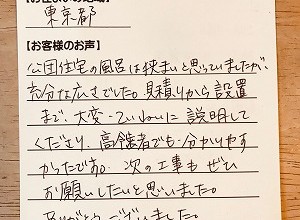 【お住まいの地域】
東京都
【お客様のお声】
公団住宅の風呂は狭いと思っていましたが、
充分な広さでした。見積りから設置
まで、大変ていねいに説明して
くださり、高齢者でも分かりやす
かったです。次の工事もぜひ
お願いしたいと思いました。
ありがとうございました。